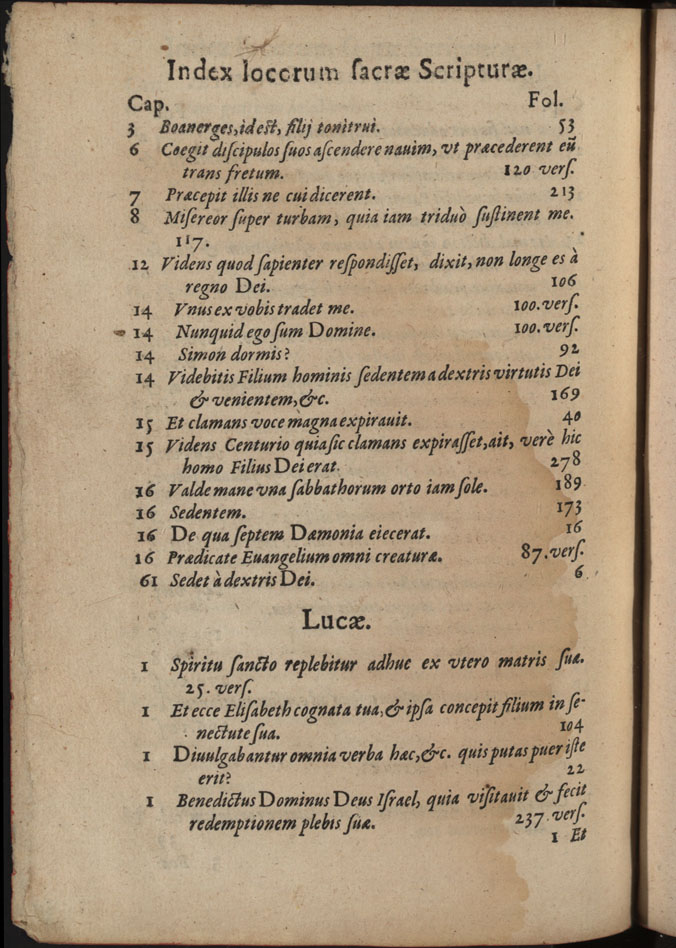 Index locorum ſacræ Scripturæ.
Cap. Fol.
3 Boanerges, id eſt, filij tonitrui. 53
6 Coegit diſcipulos ſuos aſcendere nauim, vt præcederent eū
trans fretum. 120 verſ.
7 Præcepit illis ne cui dicerent. 213
8 Miſereor ſuper turbam, quia iam triduò ſuſtinent me.
117.
12 Videns quod ſapienter reſpondiſſet, dixit, non longe es à
regno Dei. 106
14 Vnus ex vobis tradet me. 100. verſ.
14 Nunquid ego ſum Domine. 100. verſ.
14 Simon dormis? 92
14 Videbitis Filium hominis ſedentem a dextris virtutis Dei
& venientem, &c. 169
15 Et clamans voce magna expirauit. 40
15 Videns Centurio quia ſic clamans expiraſſet, ait, verè hic
homo Filius Dei erat. 278
16 Valde mane vna ſabbathorum orto iam ſole. 189
16 Sedentem. 173
16 De qua ſeptem Dæmonia eiecerat. 16
16 Prædicate Euangelium omni creaturæ. 87. verſ.
61 Sedet à dextris Dei. 6
Lucæ.
1 Spiritu ſancto replebitur adhuc ex vtero matris ſuæ.
25. verſ.
1 Et ecce Eliſabeth cognata tua, & ipſa concepit filium in ſe-
nectute ſua. 104
1 Diuulgabantur omnia verba hæc, &c. quis putas puer iſte
erit? 22
1 Benedictus Dominus Deus Iſrael, quia viſitauit & fecit
redemptionem plebis ſuæ. 237. verſ.
1 Et